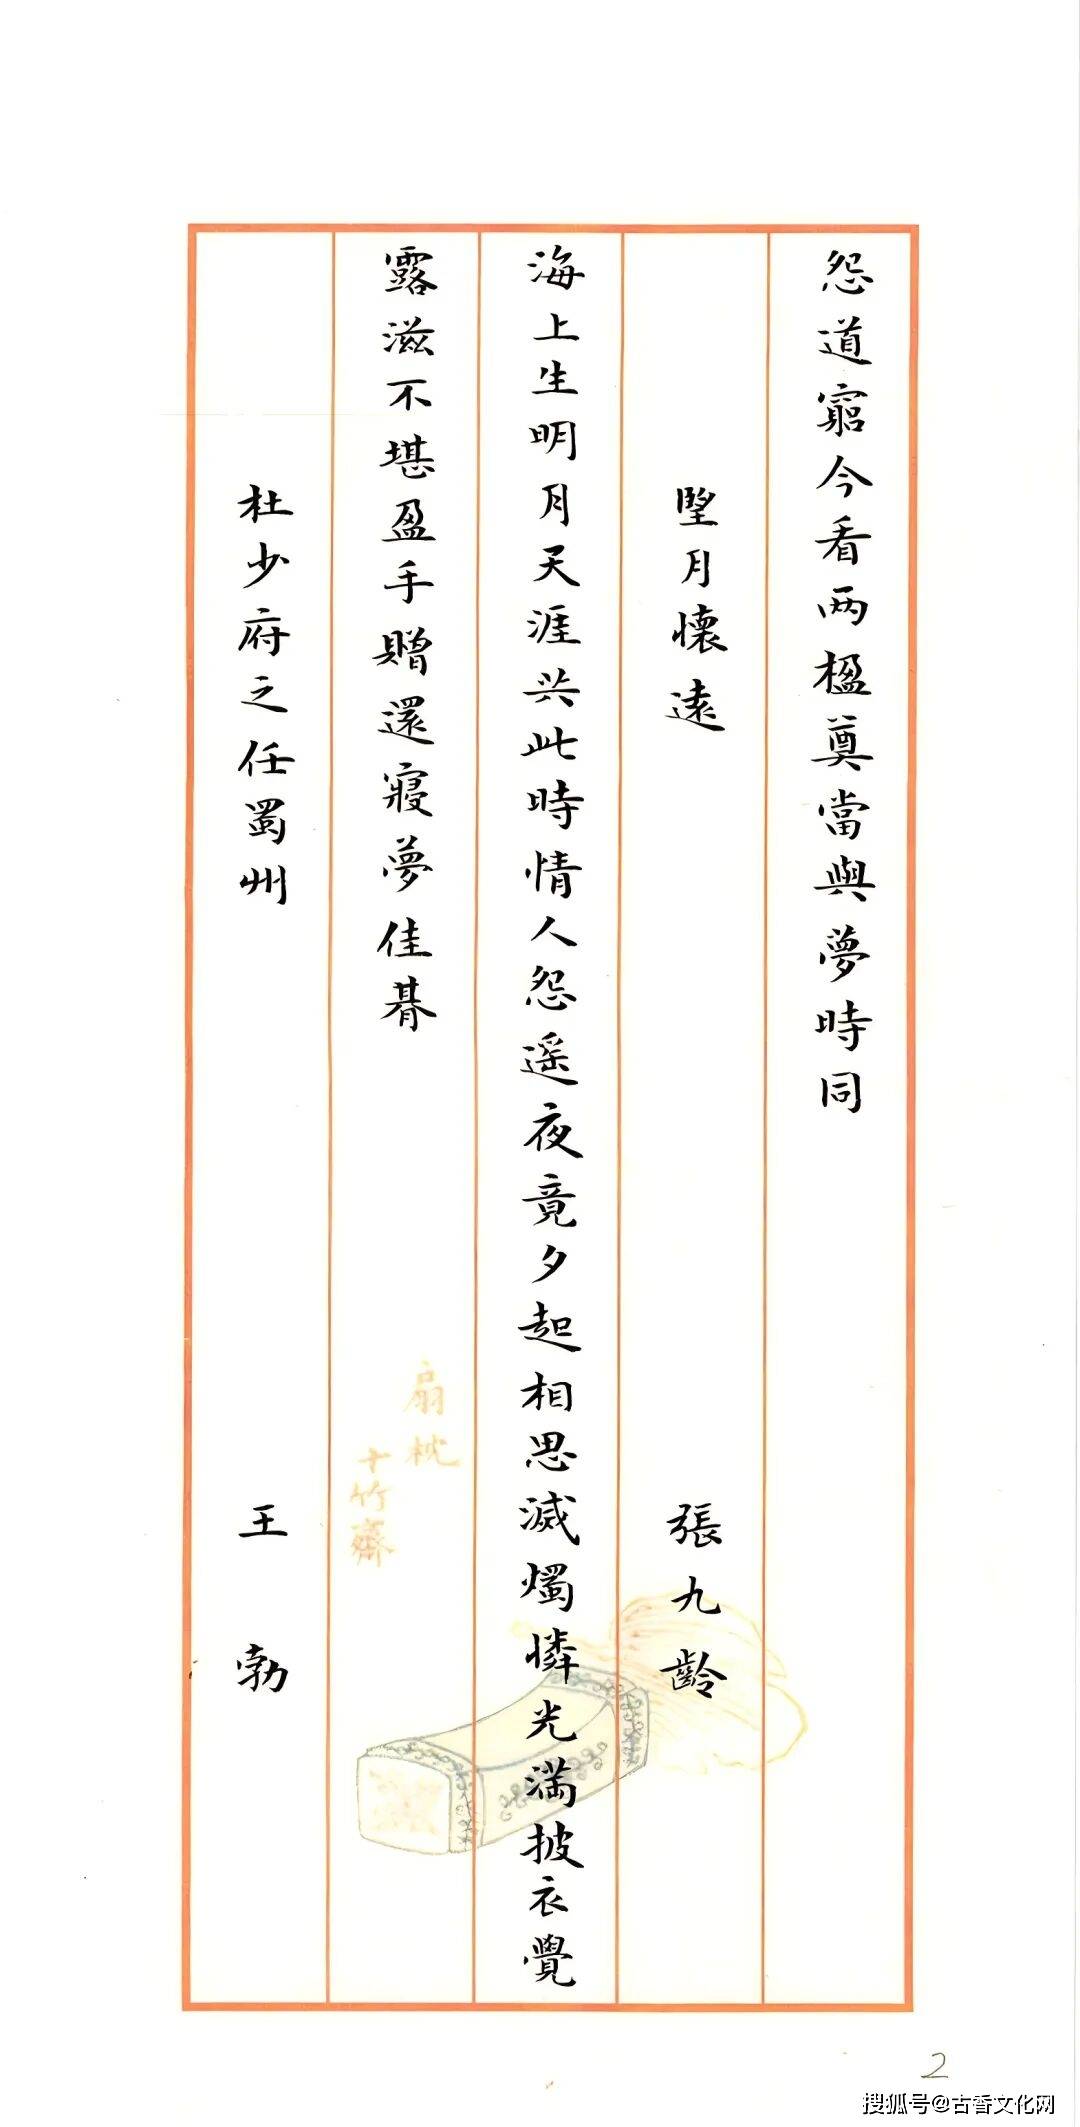 怨道窮今看两楹奠當與夢時同
望月懷遠 張九齡
海上生明月天涯共此時情人怨遥夜竟夕起相思滅燭憐光滿披衣覺
露滋不堪盈手贈還寢夢佳朞
杜少府之任蜀州 王勃
扇枕
十竹齋
2
搜狐号@古香文化网